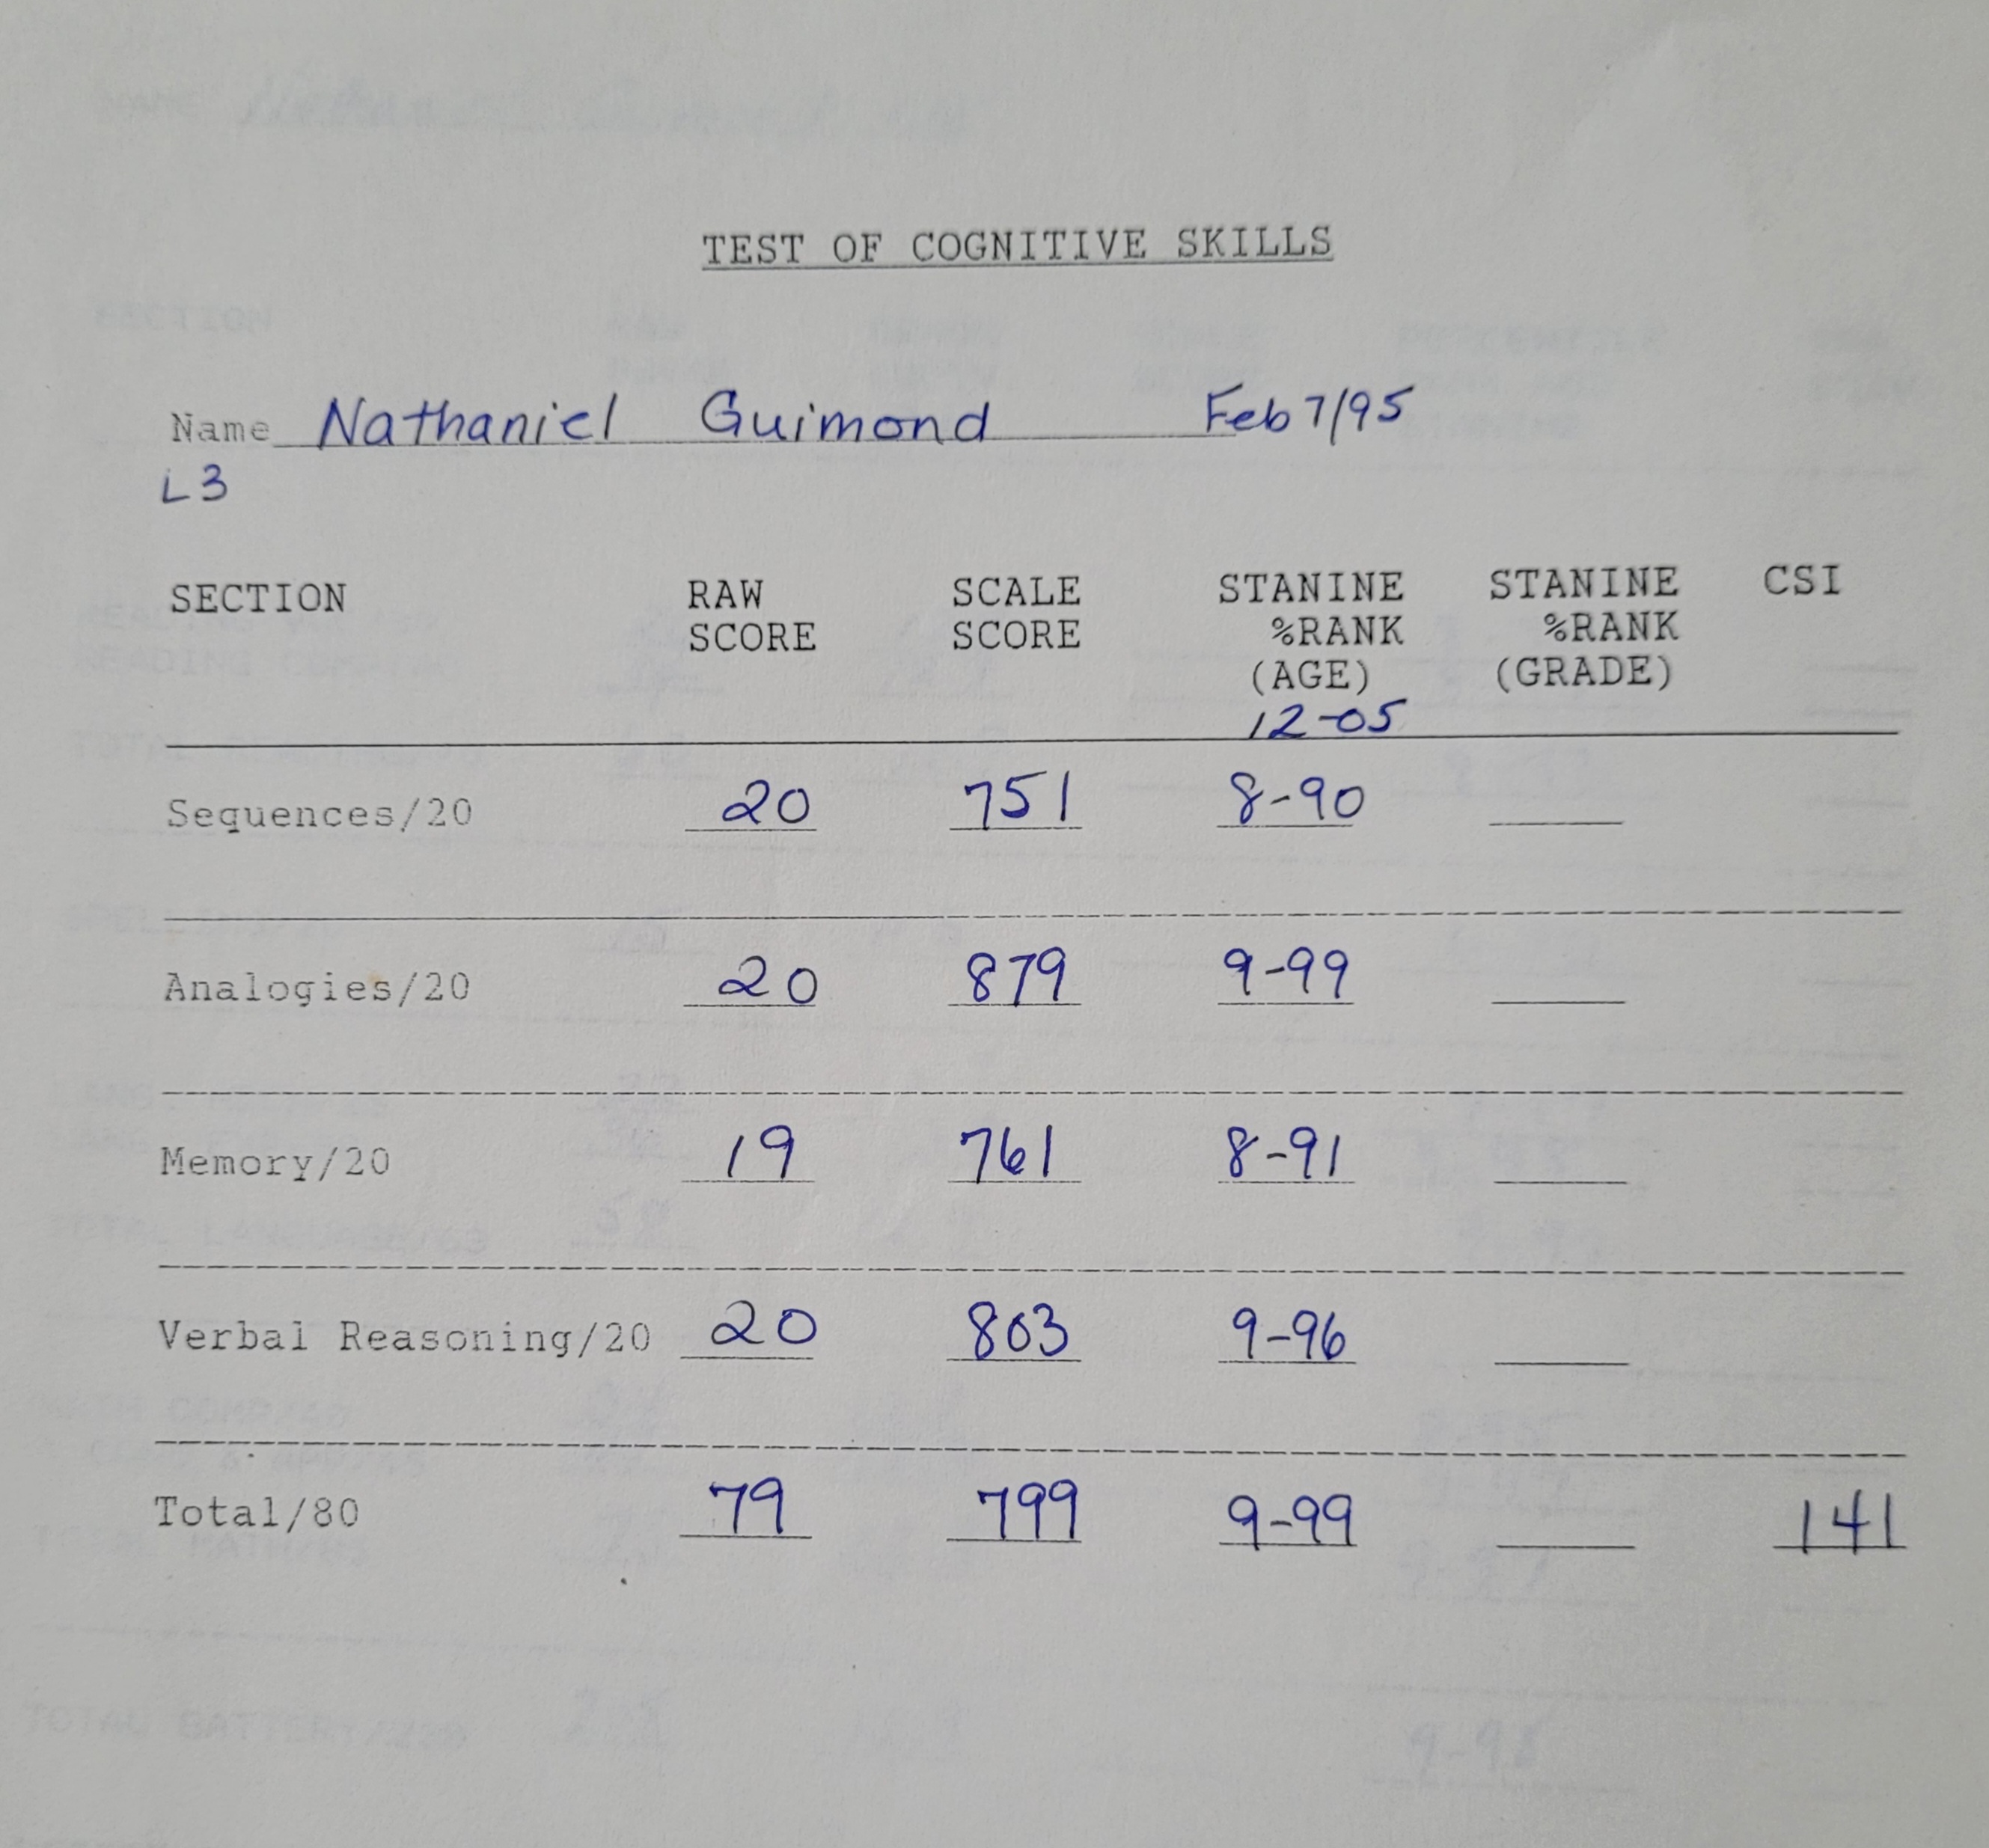 TEST OF COGNITIVE SKILLS
Name Nathaniel Guimond Feb 7/95
L3
SECTION RAW SCORE SCALE SCORE STANINE %RANK (AGE) STANINE %RANK (GRADE) CSI
12-05
Sequences/20 20 751 8-90
Analogies/20 20 879 9-99
Memory/20 19 761 8-91
Verbal Reasoning/20 20 803 9-96
Total/80 79 799 9-99 141